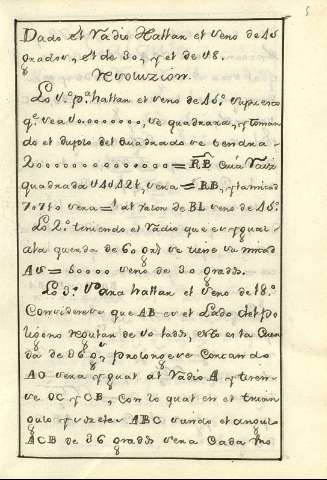 Dado el Radio Hallar el seno de 45
grados, el de 30, y el de 18.
resoluzion.
Lo 1.º p.ª hallar el seno de 45.º supuesto
q.e sea 100000000, se quadrara, y toman
do el duplo del quadrado se tendra
200000000000000 = RB cuia raiz
quadrada 141421, sera = RB, y su mitad
70710 sera = al valor de BL seno de 45.º
Lo 2.º teniendo el radio que es igual
a la cuerda de 60 gr.s se tiene su mitad
AS = 50000 seno de 30 grad.s
Lo 3.º Para hallar el seno de 18.º
Considerese que AB es el Lado del po
ligono regular de 10 lad.s, esto es la Cuer
da de 36 g.s prolonguese
AO sera igual al radio A y tiren
se OC y CB, con lo qual en el trian
gulo ABC siendo el angulo
ACB de 36 grad.s sera cada uno